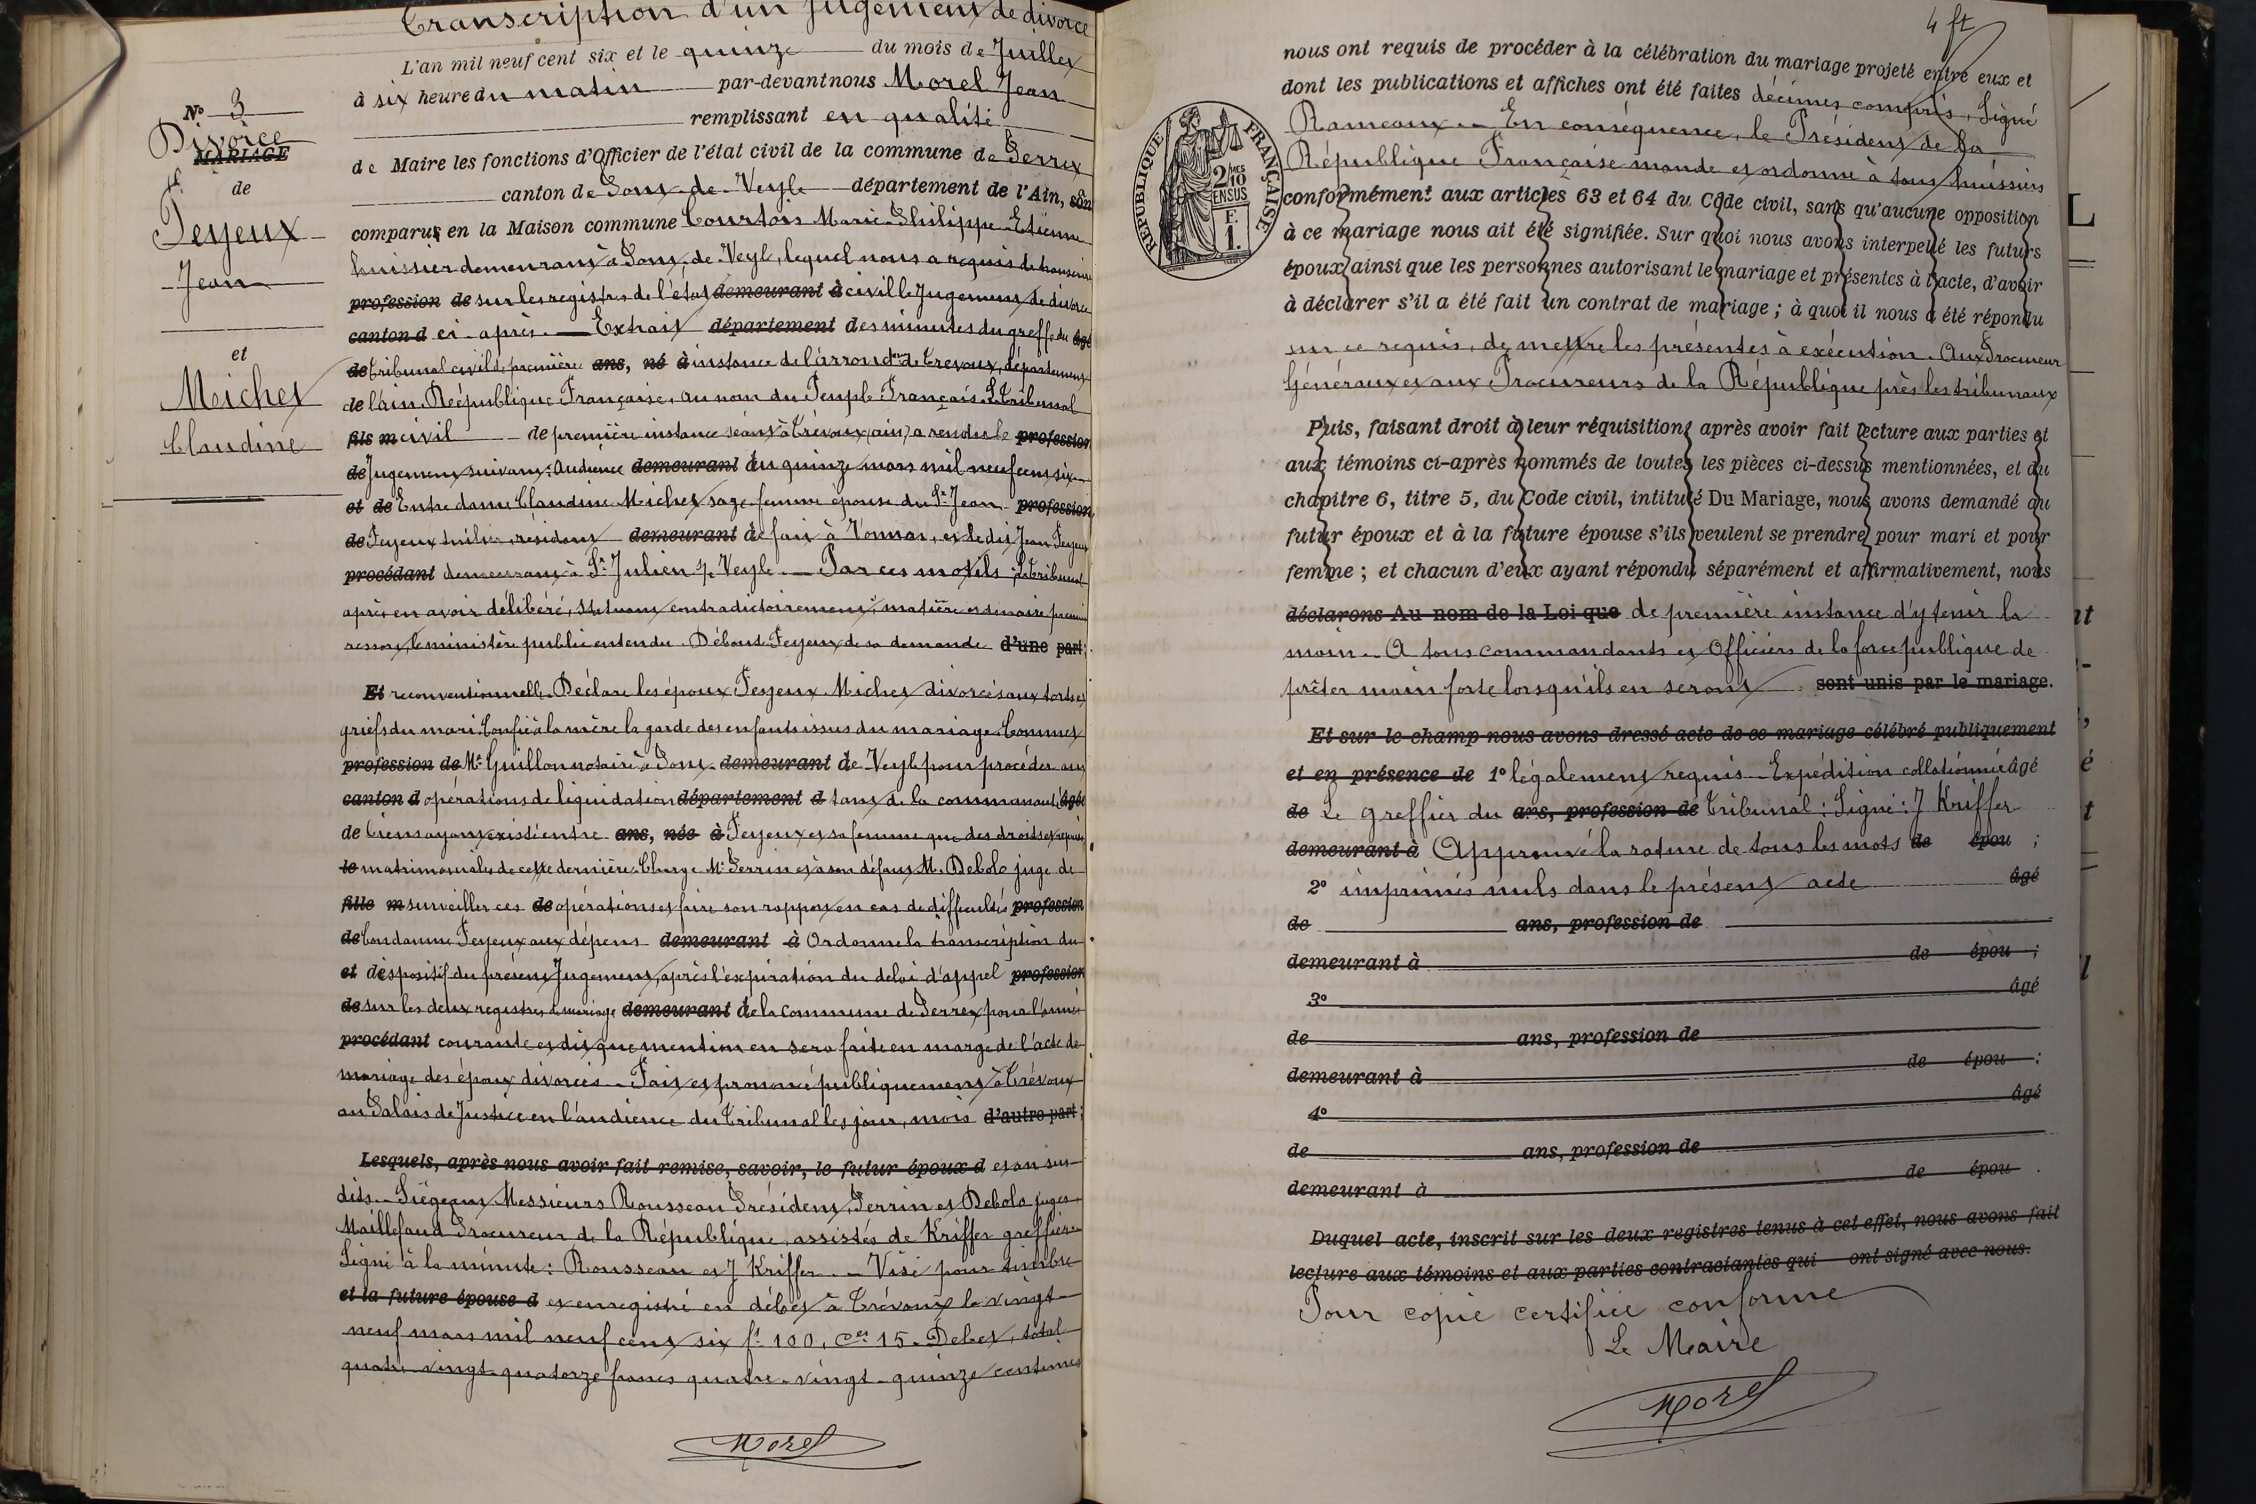 Transcription d'un jugement de divorce
L'an mil neuf cent six et le quinze du mois de Juillet
à six heure du matin par-devant nous Morel Jean
remplissant en qualité
de Maire les fonctions d'Officier de l'état civil de la commune de Perrex
canton de Pont-de-Veyle département de l'Ain, son
comparus en la Maison commune Courtois Marie Philippe Etienne
huissier demeurant à Pont de Veyle, lequel nous a requis de transcrire
profession de sur les registres de l'état demeurant à civil le Jugement de divorce
canton d ci-après. — Extrait département des minutes du greffe du âgé
de tribunal civil de première ans, né à instance de l'arrondt de Trévoux, département
de l'ain. République Française, au nom du Peuple Français. Le Tribunal
fils m civil de première instance séant à Trévoux (ain) a rendu le profession
de Jugement suivant: Audience demeurant du quinze mars mil neuf cent six
et de Entre dame Claudine Michet sage-femme épouse du Sr Jean profession
de Feyeux, résidant demeurant de fait à Vonnas, et le dit Jean Feyeux
procédant demeurant à St Julien s/ Veyle. — Par ces motifs: Le tribunal
après en avoir délibéré, Statuant contradictoirement, matière ordinaire premier
ressort, le ministère public entendu. Déboute Feyeux de sa demande d'une part;
Et reconventionnelle. Déclare les époux Feyeux Michet divorcés aux torts et
griefs du mari. Confie à la mère la garde des enfants issus du mariage. Commet
profession de Me Guillon notaire à Pont demeurant de Veyle pour procéder aux
canton d opérations de liquidation département d tant de la communauté âgée
de biens ayant existé entre ans, née à Feyeux et sa femme que des droits et reprises
le matrimoniales de cette dernière. Charge Mr Perrin et à son défaut M. Debolo juge de
fille m surveiller ces de opérations et faire son rapport en cas de difficultés profession
de Condamne Feyeux aux dépens demeurant à Ordonne la transcription du
et dispositif du présent Jugement, après l'expiration du délai d'appel profession
de sur les deux registres de mariage demeurant de la commune de Perrex pour l'année
procédant courante et dit que mention en sera faite en marge de l'acte de
mariage des époux divorcés. — Fait et prononcé publiquement à Trévoux
au Palais de Justice en l'audience du Tribunal les jour, mois d'autre part;
Lesquels, après nous avoir fait remise, savoir, le futur époux d et an sus-
dits. — Siégeant Messieurs Rousseau Président, Perrin et Debolo juges
Maillefaud Procureur de la République, assistés de Kriffer greffier
Signé à la minute: Rousseau et J Kriffer. — Visé pour timbre
et la future épouse d et enregistré en débet à Trévoux le vingt-
neuf mars mil neuf cent six fo 100, Ces 15. Debet, total
quatre-vingt-quatorze francs quatre-vingt-quinze centimes
Morel
No 3
Divorce
MARIAGE
de
Feyeux
Jean
et
Michet
Claudine
4 ft
nous ont requis de procéder à la célébration du mariage projeté entre eux et
dont les publications et affiches ont été faites décimes compris, Signé
Rameaux. — En conséquence, le Président de la
République Française mande et ordonne à tous huissiers
conformément aux articles 63 et 64 du Code civil, sans qu'aucune opposition
à ce mariage nous ait été signifiée. Sur quoi nous avons interpellé les futurs
époux ainsi que les personnes autorisant le mariage et présentes à l'acte, d'avoir
à déclarer s'il a été fait un contrat de mariage; à quoi il nous a été répondu
sur ce requis, de mettre les présentes à exécution. Aux Procureur
Généraux et aux Procureurs de la République près les tribunaux
Puis, faisant droit à leur réquisition, après avoir fait lecture aux parties et
aux témoins ci-après nommés de toutes les pièces ci-dessus mentionnées, et du
chapitre 6, titre 5, du Code civil, intitulé Du Mariage, nous avons demandé au
futur époux et à la future épouse s'ils veulent se prendre pour mari et pour
femme; et chacun d'eux ayant répondu séparément et affirmativement, nous
déclarons Au nom de la Loi que de première instance d'y tenir la
main. — A tous commandants et Officiers de la force publique de
prêter main forte lorsqu'ils en seront sont unis par le mariage.
Et sur le champ nous avons dressé acte de ce mariage célébré publiquement
et en présence de 1o légalement requis. Expédition collationnée âgé
de Le greffier du ans, profession de Tribunal: Signé: J Kriffer
demeurant à Approuvé la rature de tous les mots de épou ;
2o imprimés nuls dans le présent acte âgé
de ans, profession de
demeurant à de épou ;
3o âgé
de ans, profession de
demeurant à de épou ;
4o âgé
de ans, profession de
demeurant à de épou .
Duquel acte, inscrit sur les deux registres tenus à cet effet, nous avons fait
lecture aux témoins et aux parties contractantes qui ont signé avec nous.
Pour copie certifiée conforme
Le Maire
Morel
RÉPUBLIQUE FRANÇAISE
2 MES
10
EN SUS
F.
1.